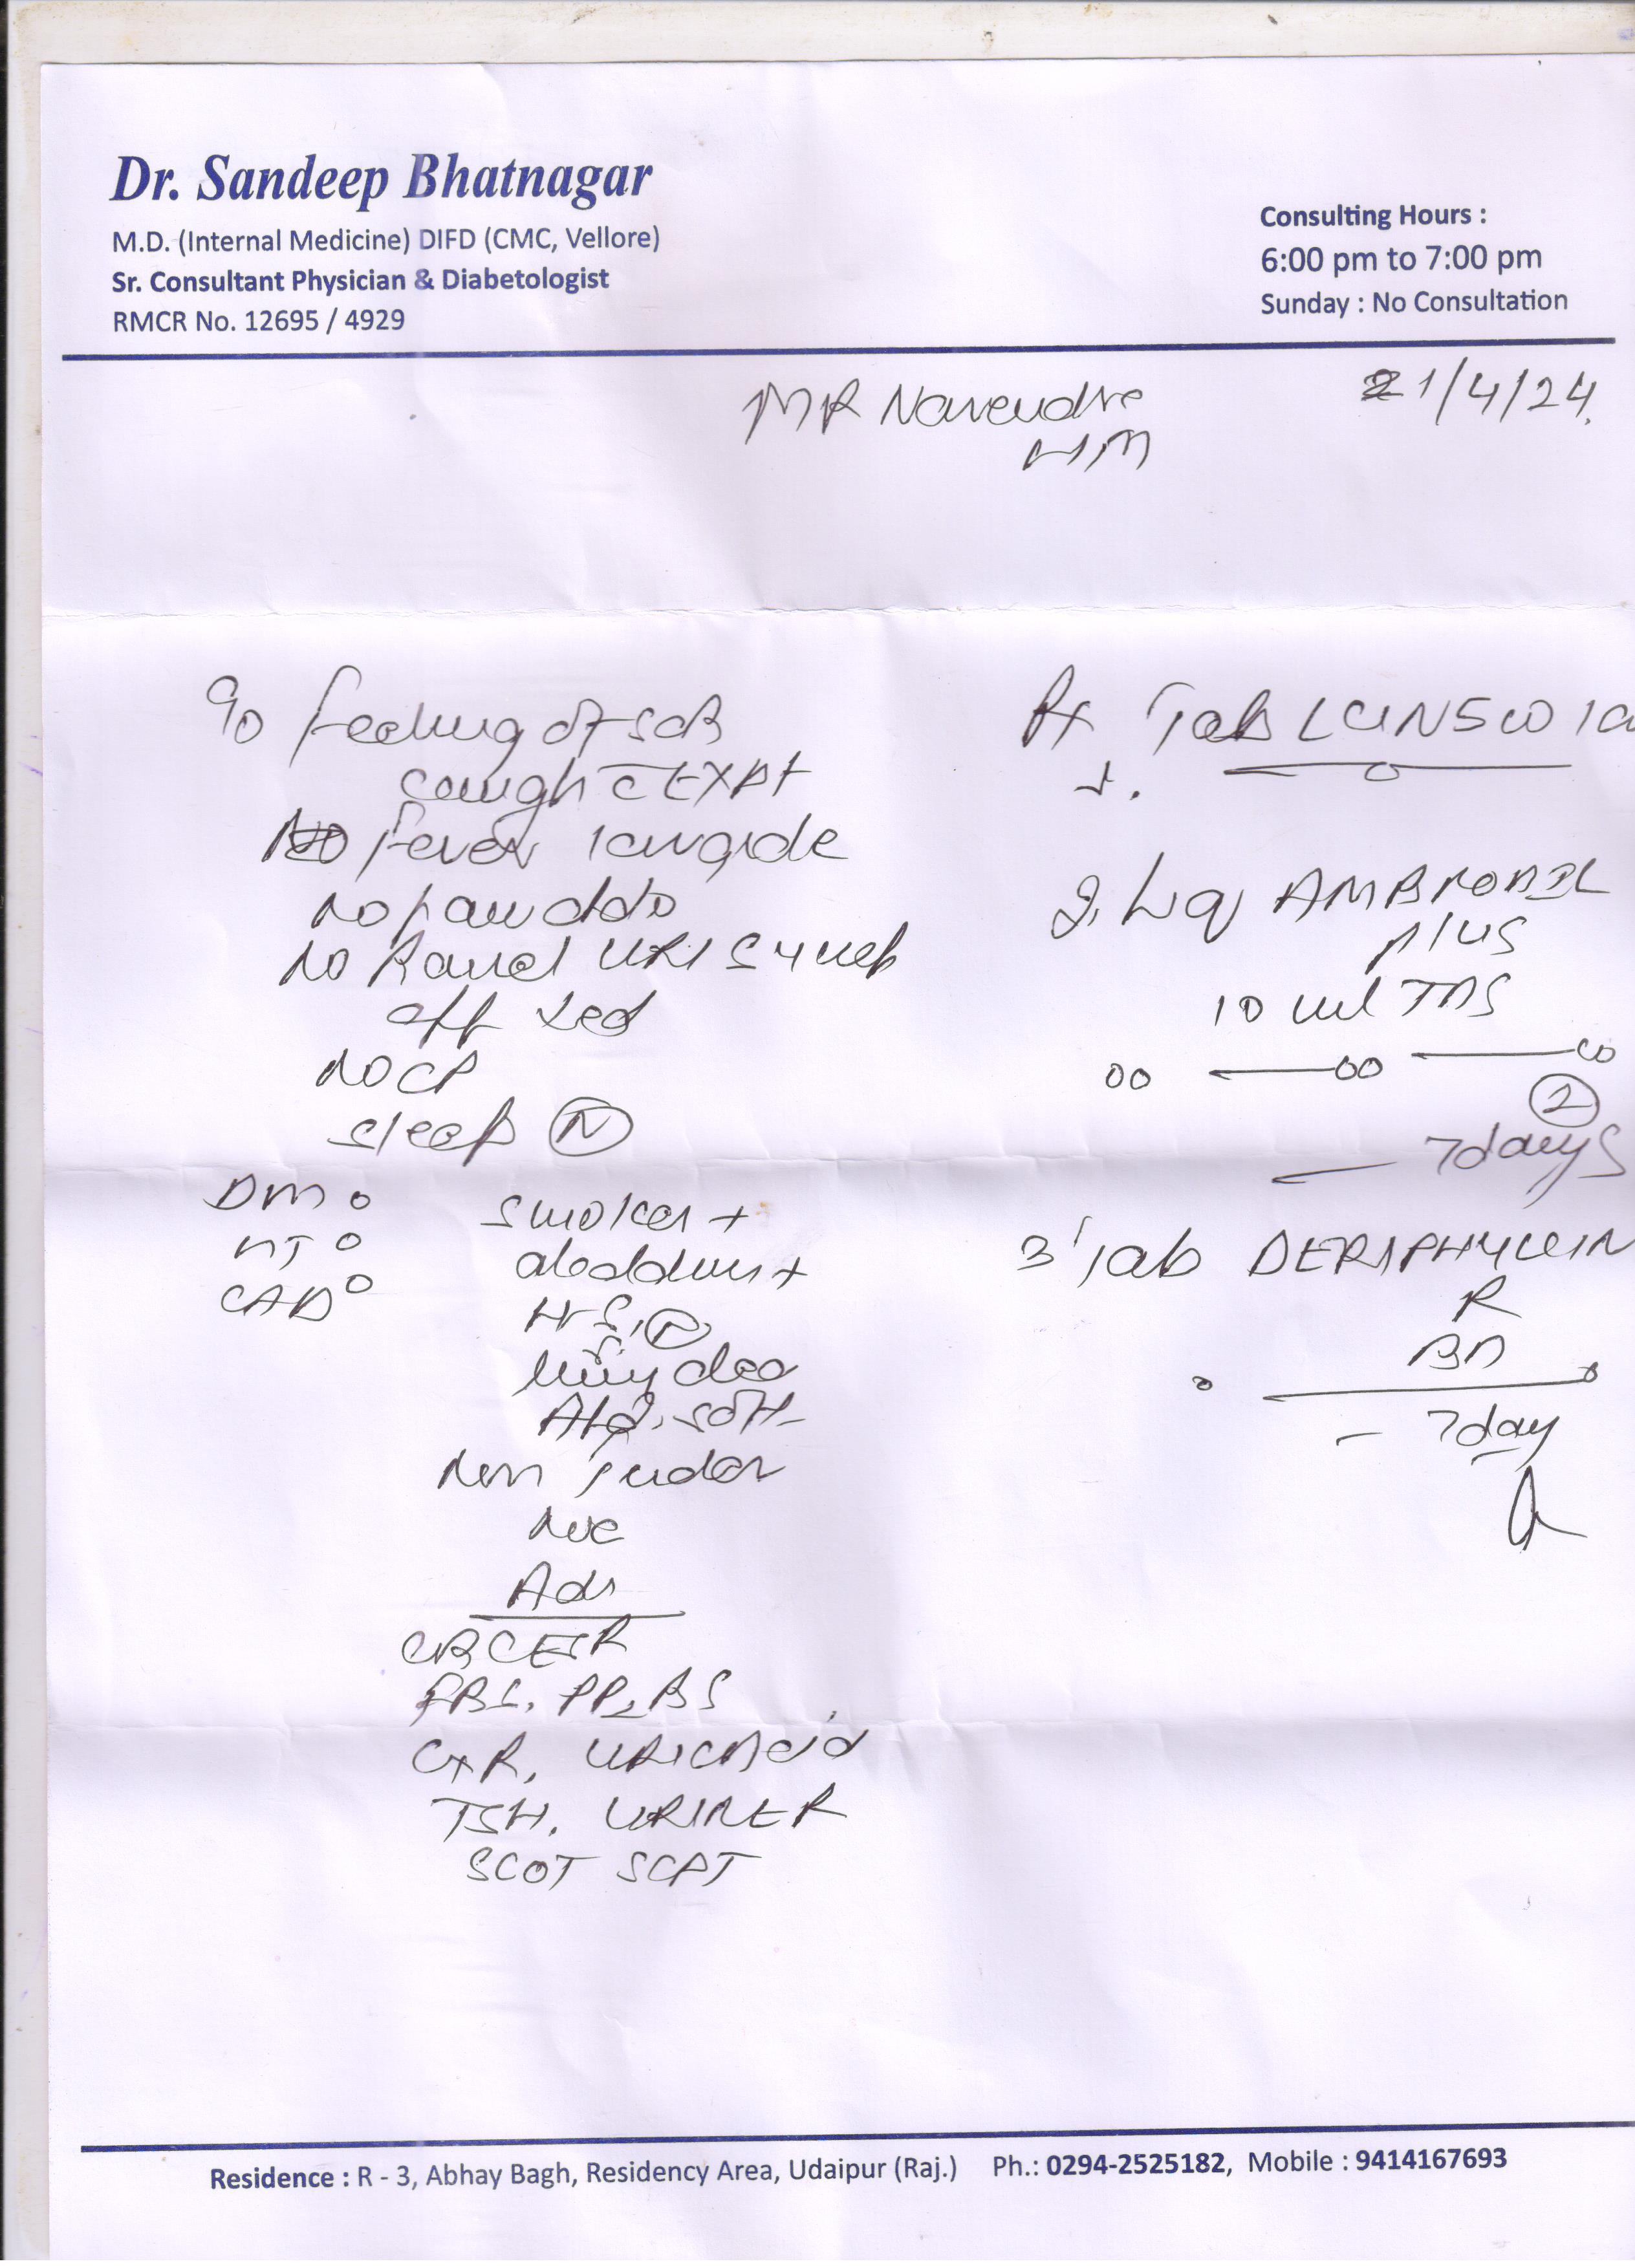 Dr. Sandeep Bhatnagar
M.D. (Internal Medicine) DIFD (CMC, Vellore)
Sr. Consultant Physician & Diabetologist
RMCR No. 12695 / 4929
Consulting Hours :
6:00 pm to 7:00 pm
Sunday : No Consultation
MR Narendra
21/4/24
H/M
C/o feeling of SOB
cough c̄ EXPT
fever low grade
No
No
off
NO CP
sleep (N)
DM o
HT o
CAD o
smoker +
HS, (N)
Soft
Non Tender
Adv
CBC ESR
FBS. PP2BS
CXR, URIC Acid
TSH. URINE R
SGOT SGPT
Rx Tab
1.
2. Liq AMBRODIL
plus
10 ml TDS
00 — 00 — 00
(2)
— 7 days
3 Tab DERIPHYLLIN
R
BD
o — o
— 7 day
Residence : R - 3, Abhay Bagh, Residency Area, Udaipur (Raj.) Ph.: 0294-2525182, Mobile : 9414167693